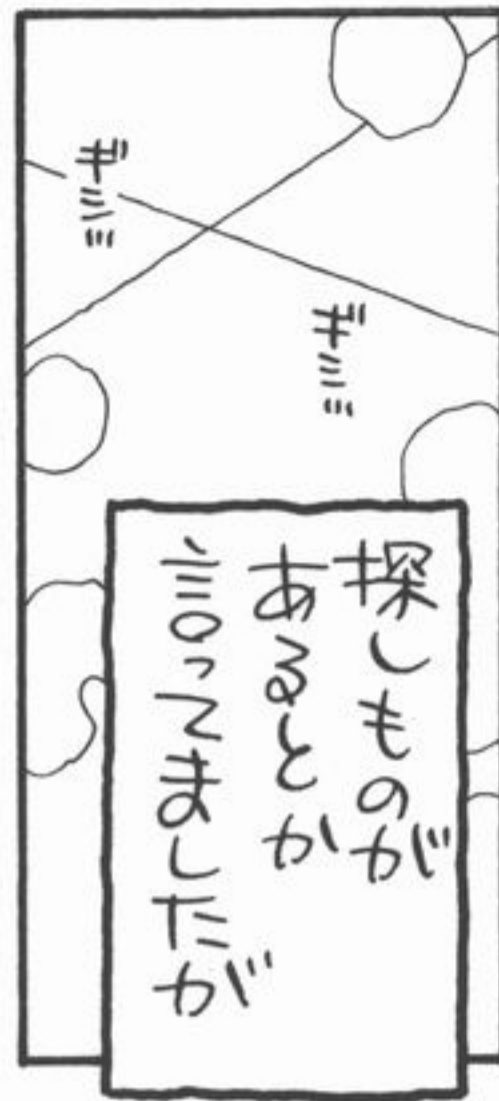 ギミミ
ギミミ
探しものが
あるとか
言ってましたが